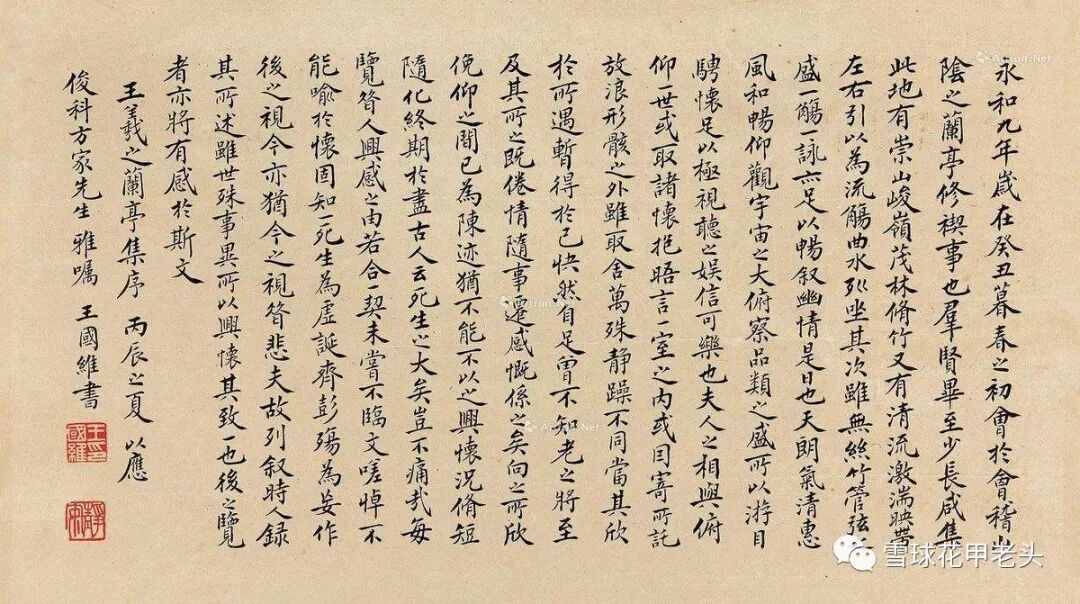 永和九年歲在癸丑暮春之初會於會稽山
陰之蘭亭修禊事也羣賢畢至少長咸集
此地有崇山峻嶺茂林脩竹又有清流激湍映帶
左右引以為流觴曲水列坐其次雖無絲竹管弦之
盛一觴一詠亦足以暢叙幽情是日也天朗氣清惠
風和暢仰觀宇宙之大俯察品類之盛所以游目
騁懷足以極視聽之娛信可樂也夫人之相與俯
仰一世或取諸懷抱晤言一室之內或因寄所託
放浪形骸之外雖取舍萬殊靜躁不同當其欣
於所遇暫得於己快然自足曾不知老之將至
及其所之既倦情隨事遷感慨係之矣向之所欣
俛仰之間已為陳迹猶不能不以之興懷況脩短
隨化終期於盡古人云死生亦大矣豈不痛哉每
覽昔人興感之由若合一契未嘗不臨文嗟悼不
能喻於懷固知一死生為虛誕齊彭殤為妄作
後之視今亦猶今之視昔悲夫故列叙時人錄
其所述雖世殊事異所以興懷其致一也後之覽
者亦將有感於斯文
王羲之蘭亭集序 丙辰之夏 以應
俊科方家先生雅囑 王國維書
王國維印
靜安
雪球花甲老头